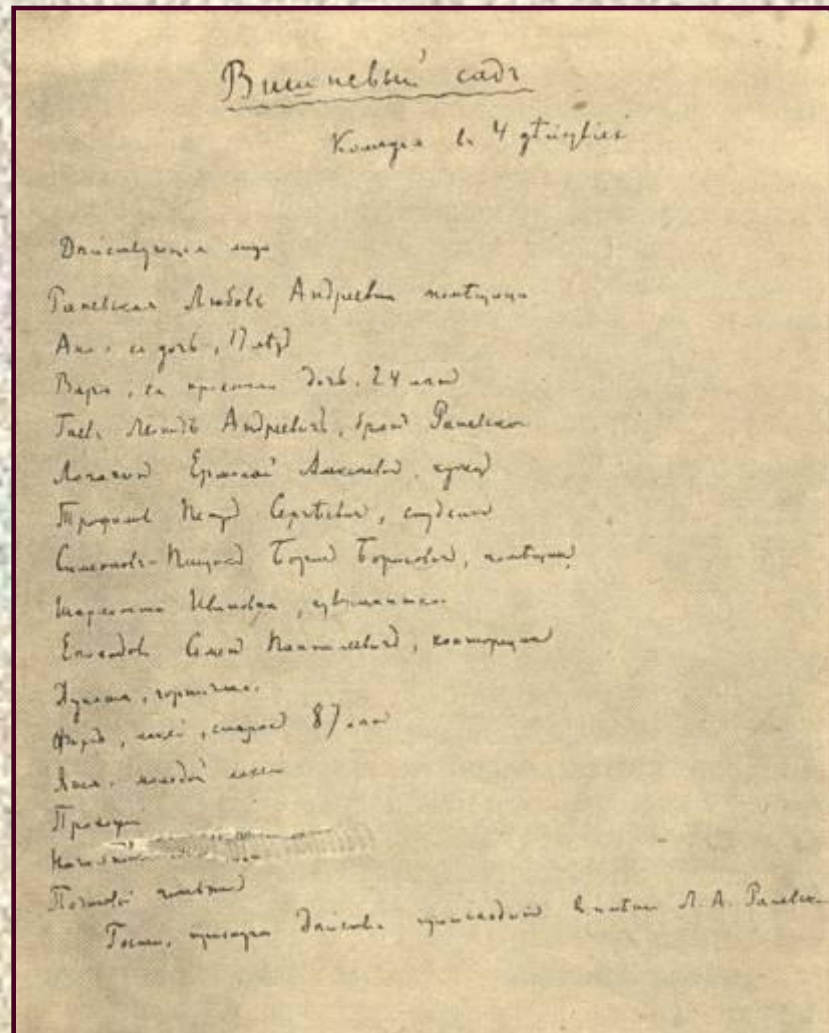 Вишневый садъ
Комедія въ 4 дѣйствіяхъ
Дѣйствующія лица
Раневская Любовь Андреевна помѣщица
Аня, ея дочь, 17 лѣтъ
Варя, ея пріемная дочь, 24 лѣтъ
Гаевъ Леонидъ Андреевичъ, братъ Раневской
Лопахинъ Ермолай Алексѣевичъ, купецъ
Трофимовъ Петръ Сергѣевичъ, студентъ
Симеоновъ-Пищикъ Борисъ Борисовичъ, помѣщикъ
Шарлотта Ивановна, гувернантка
Епиходовъ Семенъ Пантелеевичъ, конторщикъ
Дуняша, горничная.
Фирсъ, лакей, старикъ 87 лѣтъ
Яша, молодой лакей
Прохожій
Почтовый чиновникъ
Гости, прислуга Дѣйствіе происходитъ въ имѣніи Л. А. Раневской